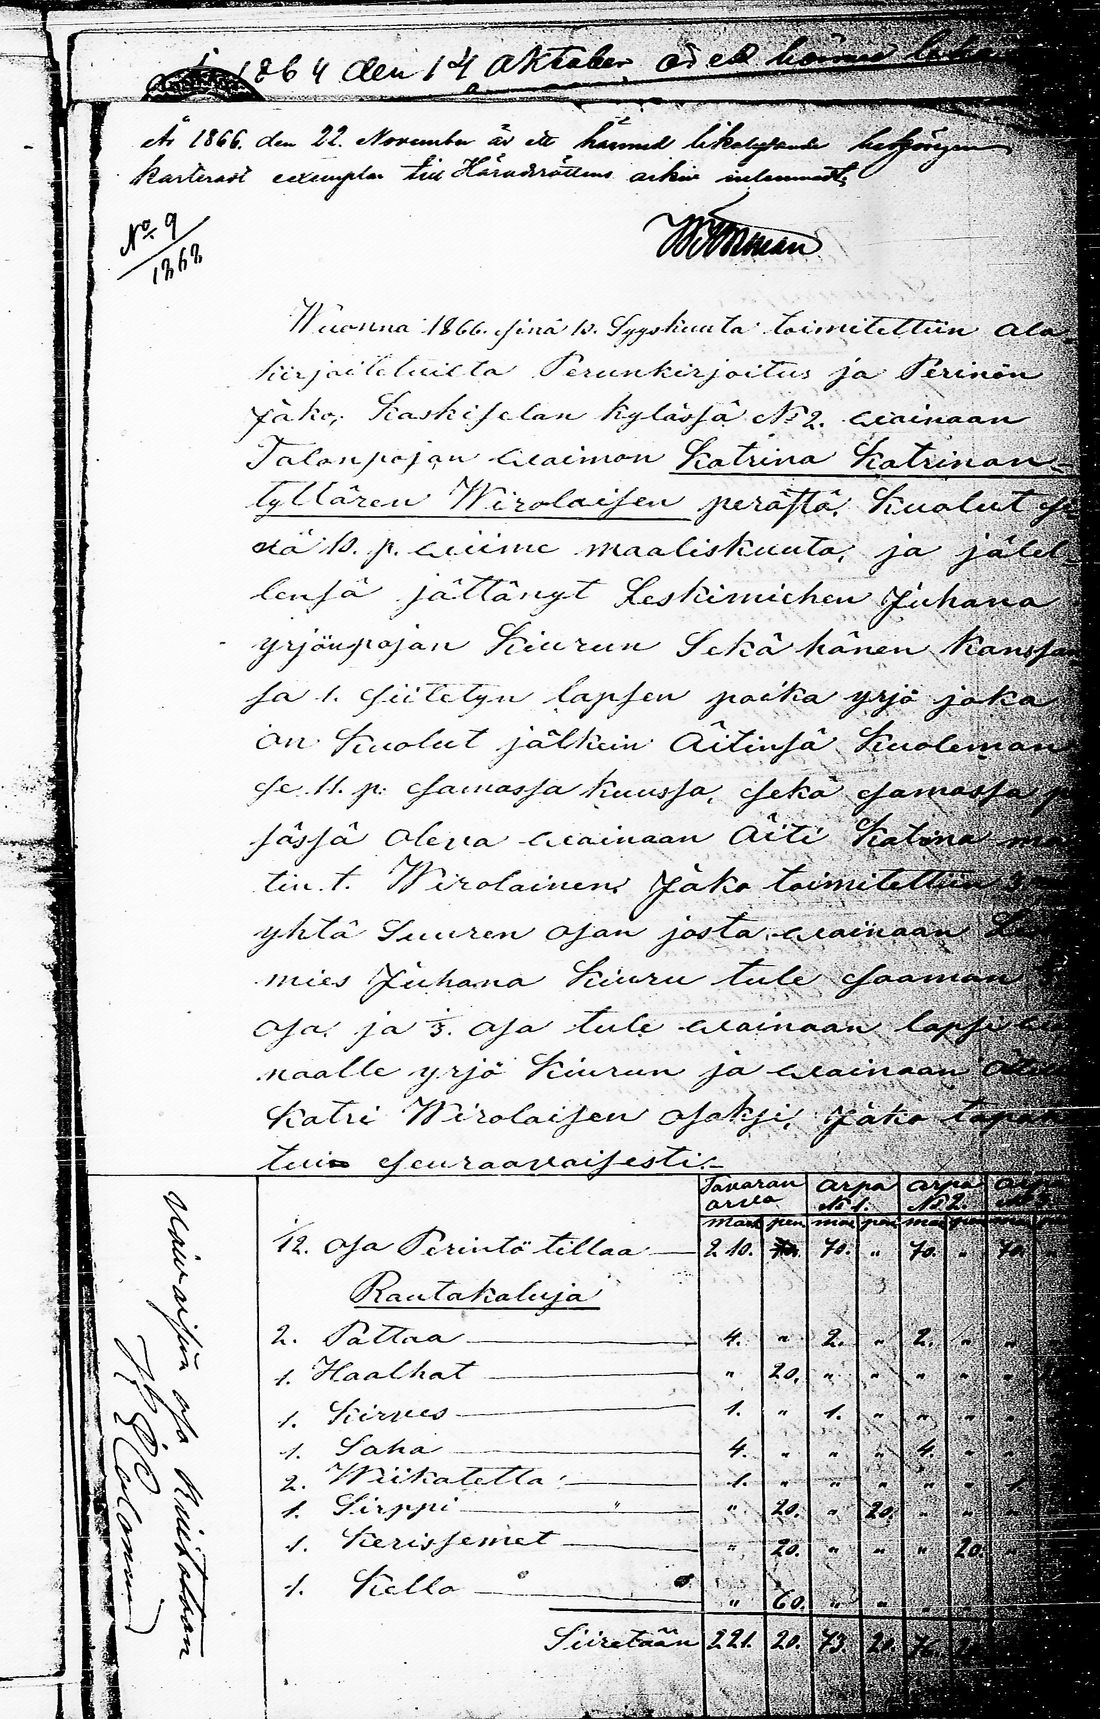 1864 den 14 Oktober är ett härmed
År 1866. den 22. November är ett härmed likalydande behörigen
karteradt exemplar till Häradsrättens arkiv inlemnadt;
No. 9
1868
Wuonna 1866. sinä 10. Syyskuuta toimitettiin ala
kirjoitetuilta Perunkirjoitus ja Perinön
Jako, Kaskiselan kylässä No 2. wainaan
Talonpojan waimon Katrina Katrinan=
tyttären Wirolaisen perästä, Kuolut si
nä 10. p. wiime maaliskuuta, ja jälel=
lensä jättänyt Leskimiehen Juhana
yrjönpojan Kiurun Sekä hänen Kanssan
sa 1. siitetyn lapsen poika yrjö joka
on Kuolut jälkein Äitinsä Kuoleman
se 11. p: samassa kuussa, sekä samassa
sässä olewa wainaan Äiti Katrina ma
tin. t. Wirolainen, Jako toimitettiin 3.
yhtä Suuren osan josta wainaan
mies Juhana Kiuru tule saaman
osa. ja 1/3. osa tule wainaan lapsi wai
naalle yrjö Kiurun ja wainaan Äitin
Katri Wirolaisen osaksi, Jako tapah
tui seuraavaisesti:-
Tavaran arvo Arpa No 1. Arpa No 2. Arpa
mark pen mar pen mar pen
1/12. osa Perintö tillaa 210. 70. " 70. " 70. "
Rautakaluja
2. Pattaa 4. " 2. " 2. " " "
1. Haalhat " 20. " " " " "
1. Kirves 1. " 1. " " " "
1. Saha 4. " " " 4. " "
2. Wiikatetta 1. " " " " " 1.
1. Sirppi " 20. " 20. " " "
1. Kerissemet " 20. " " " 20. "
1. Kello " 60. " " " "
Siiretään 221. 20. 73. 20. 76.
Waivaisten osa Kuitataan